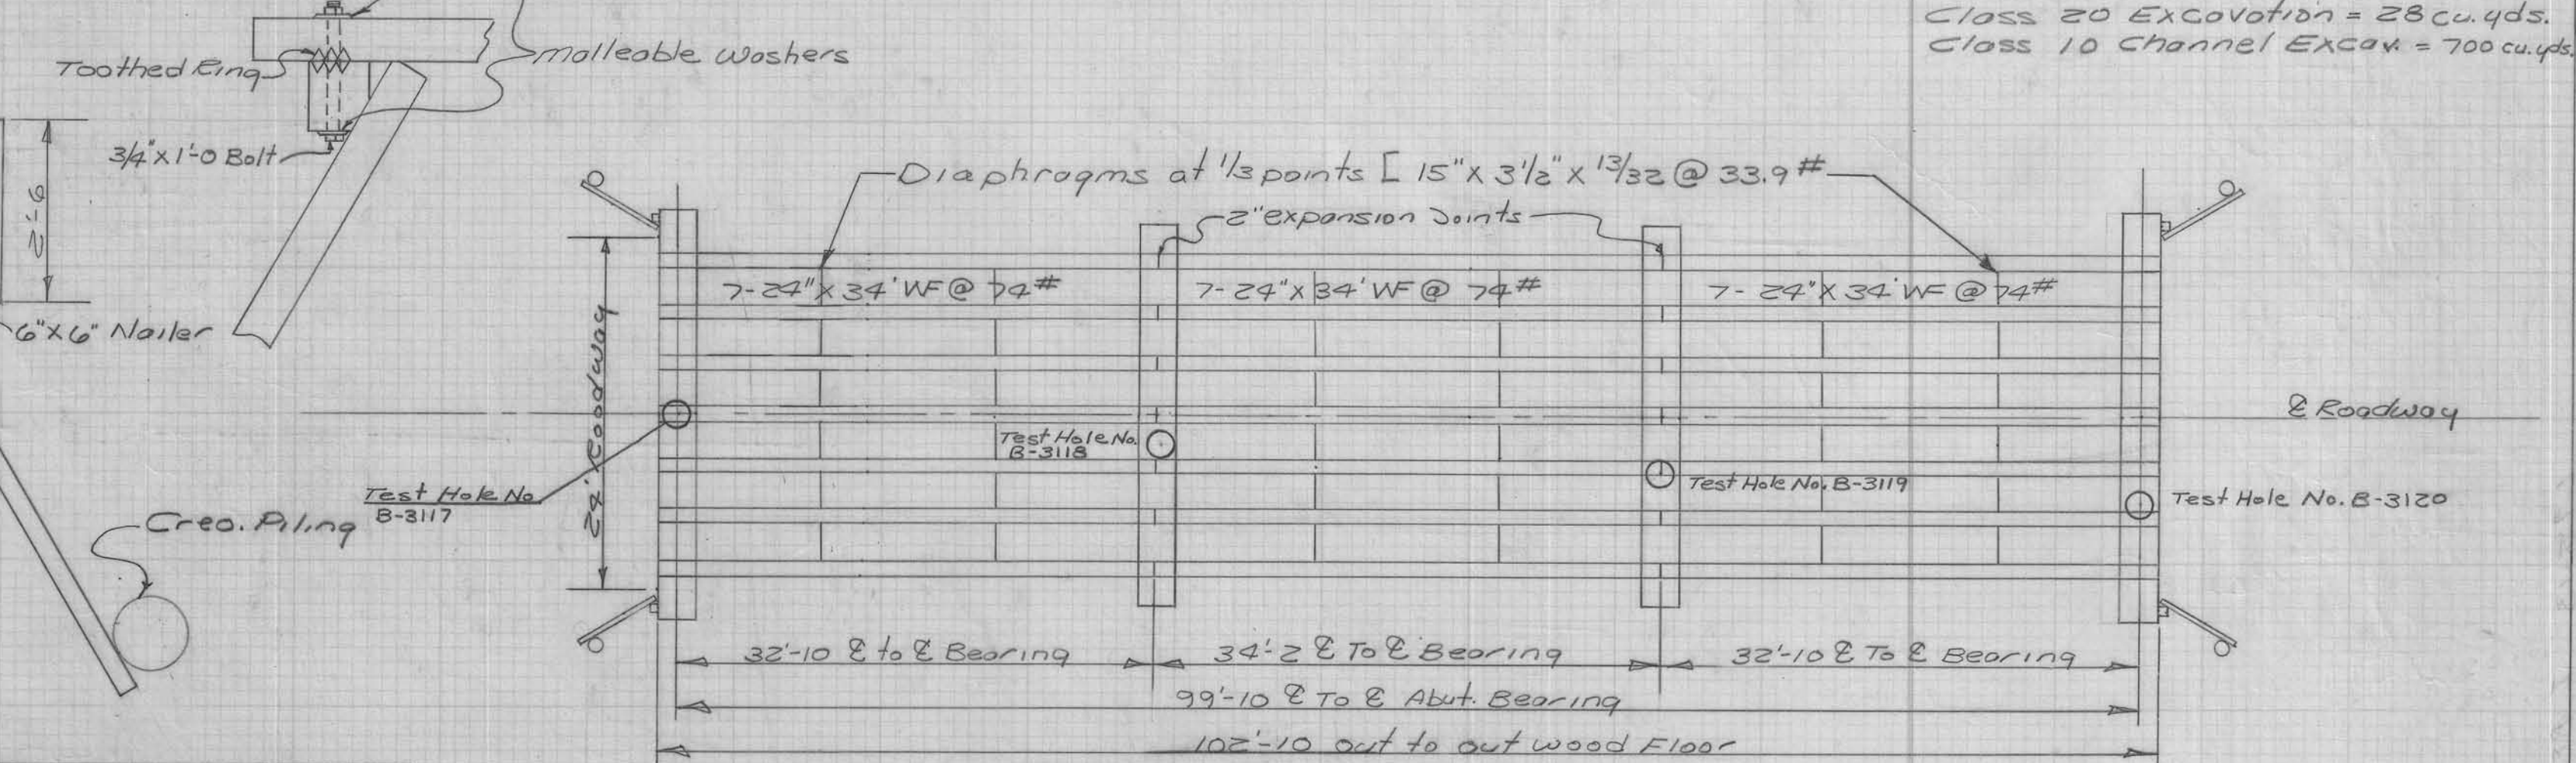 Class 20 Excavation = 28 cu. yds.
Class 10 Channel Excav. = 700 cu. yds.
malleable washers
Toothed Ring
3/4" x 1'-0 Bolt
2'-6
6"x6" Nailer
Diaphragms at 1/3 points [ 15" x 3 1/2" x 13/32 @ 33.9 #
2" expansion Joints
7-24" x 34' WF @ 74#
7-24" x 34' WF @ 74#
7-24" x 34' WF @ 74#
24' Roadway
℄ Roadway
Test Hole No.
B-3118
Test Hole No. B-3119
Test Hole No
B-3117
Test Hole No. B-3120
Creo. Piling
32'-10 ℄ to ℄ Bearing
34'-2 ℄ To ℄ Bearing
32'-10 ℄ To ℄ Bearing
99'-10 ℄ To ℄ Abut. Bearing
102'-10 out to out wood Floor